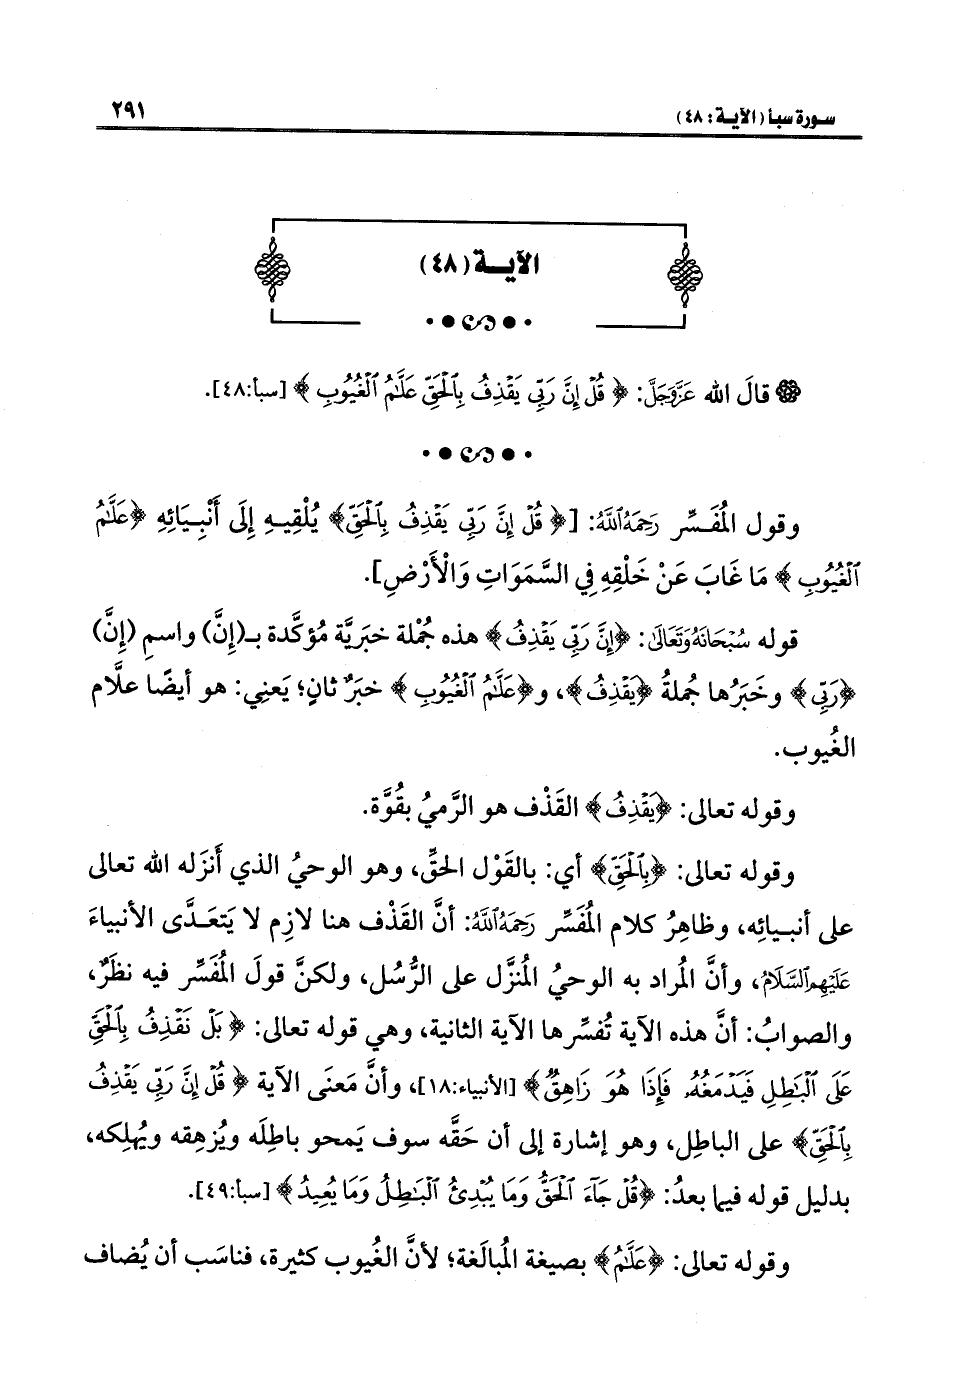 سورة سبأ (الآية: ٤٨)
٢٩١
الآية (٤٨)
قالَ الله عَزَّوَجَلَّ: ﴿ قُلْ إِنَّ رَبِّي يَقْذِفُ بِالْحَقِّ عَلَّٰمُ ٱلْغُيُوبِ ﴾ [سبأ:٤٨].
وقول المُفَسِّر رَحِمَهُ ٱللَّهُ: [﴿ قُلْ إِنَّ رَبِّي يَقْذِفُ بِٱلْحَقِّ﴾ يُلْقِيهِ إِلَى أَنْبِيَائِهِ ﴿عَلَّٰمُ
ٱلْغُيُوبِ ﴾ مَا غَابَ عَنْ خَلْقِهِ فِي السَّمَوَاتِ وَالْأَرْضِ].
قوله سُبْحَانَهُ وَتَعَالَىٰ: ﴿إِنَّ رَبِّي يَقْذِفُ﴾ هذه جُمْلة خبَريَّة مُؤكَّدة بـ(إِنَّ) واسمِ (إِنَّ)
﴿رَبِّي﴾ وخَبَرُها جُملةُ ﴿يَقْذِفُ﴾، و﴿عَلَّٰمُ ٱلْغُيُوبِ ﴾ خبَرٌ ثانٍ؛ يَعنِي: هو أيضًا علَّام
الغُيوب.
وقوله تعالى: ﴿يَقْذِفُ﴾ القَذْف هو الرَّميُ بقُوَّة.
وقوله تعالى: ﴿بِٱلْحَقِّ﴾ أي: بالقَوْل الحقِّ، وهو الوحيُ الذي أَنزَله الله تعالى
على أنبيائِه، وظاهِرُ كلام المُفَسِّر رَحِمَهُ ٱللَّهُ: أنَّ القَذْف هنا لازِم لا يَتعَدَّى الأنبياءَ
عَلَيْهِمُ ٱلسَّلَامُ، وأنَّ المُراد به الوحيُ المُنزَّل على الرُّسُل، ولكنَّ قولَ المُفَسِّر فيه نظَرٌ،
والصوابُ: أنَّ هذه الآية تُفسِّرها الآية الثانية، وهي قوله تعالى: ﴿ بَلْ نَقْذِفُ بِٱلْحَقِّ
عَلَى ٱلْبَٰطِلِ فَيَدْمَغُهُۥ فَإِذَا هُوَ زَاهِقٌ﴾ [الأنبياء:١٨]، وأنَّ مَعنَى الآية ﴿ قُلْ إِنَّ رَبِّي يَقْذِفُ
بِٱلْحَقِّ﴾ على الباطِل، وهو إشارة إلى أن حَقَّه سوف يَمحو باطِلَه ويُزهِقه ويُهلِكه،
بدليل قوله فيما بعدُ: ﴿قُلْ جَآءَ ٱلْحَقُّ وَمَا يُبْدِئُ ٱلْبَٰطِلُ وَمَا يُعِيدُ ﴾ [سبأ:٤٩].
وقوله تعالى: ﴿عَلَّٰمُ﴾ بصيغة المُبالَغة؛ لأنَّ الغُيوب كثيرة، فناسَب أن يُضاف